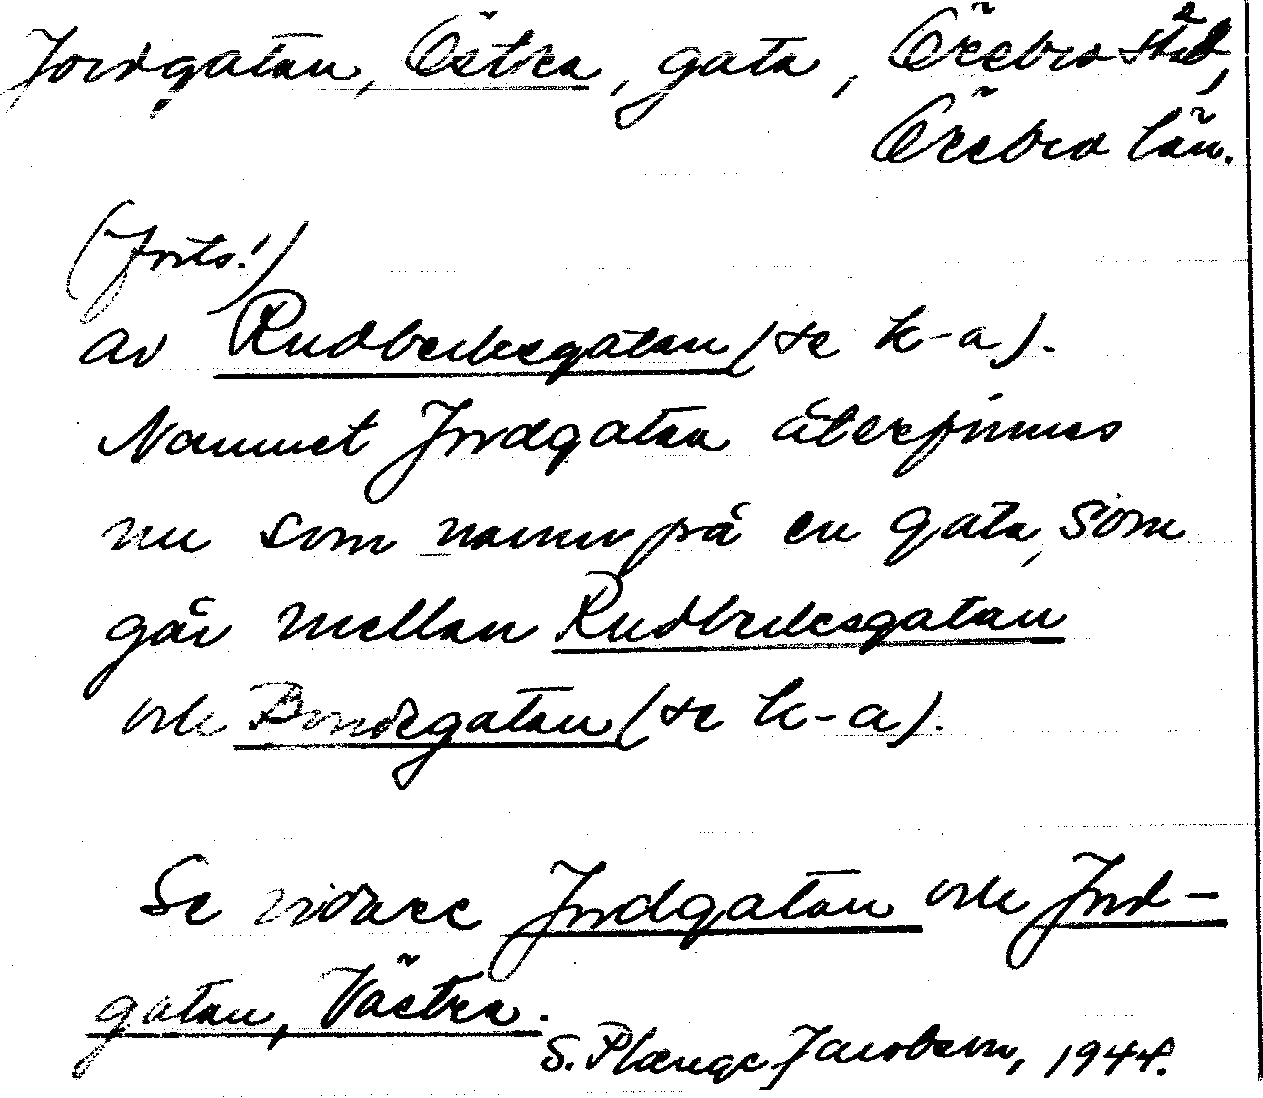 Jordgatan, Östra, gata, Örebro stad,
Örebro län.
(forts.!)
av Rudbecksgatan (se k-a).
Namnet Jordgatan återfinnes
nu som namn på en gata, som
går mellan Rudbecksgatan
och Bondegatan (se k-a).
Se vidare Jordgatan och Jord-
gatan, Västra.
S. Plænge Jacobson, 1944.